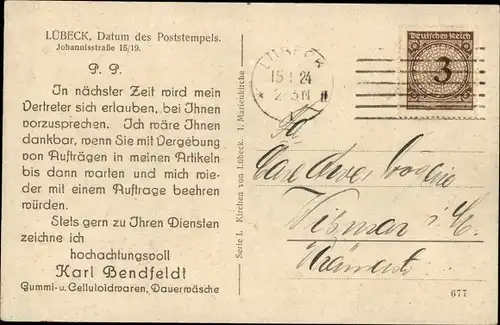 LÜBECK, Datum des Poststempels.
Johannisstraße 15/19.
P. P.
In nächster Zeit wird mein
Vertreter sich erlauben, bei Ihnen
vorzusprechen. Ich wäre Ihnen
dankbar, wenn Sie mit Vergebung
von Aufträgen in meinen Artikeln
bis dann warten und mich wie-
der mit einem Auftrage beehren
würden.
Stets gern zu Ihren Diensten
zeichne ich
hochachtungsvoll
Karl Bendfeldt
Gummi- u. Celluloidwaren, Dauerwäsche
Serie I. Kirchen von Lübeck. 1. Marienkirche
LÜBECK
15.1.24
2-3N
Deutsches Reich
3
Fa
Wismar i. M.
677